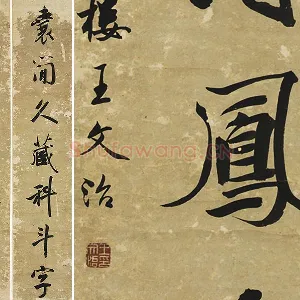 鳳
樓王文治
囊簡久藏科斗字
shufawang.cn